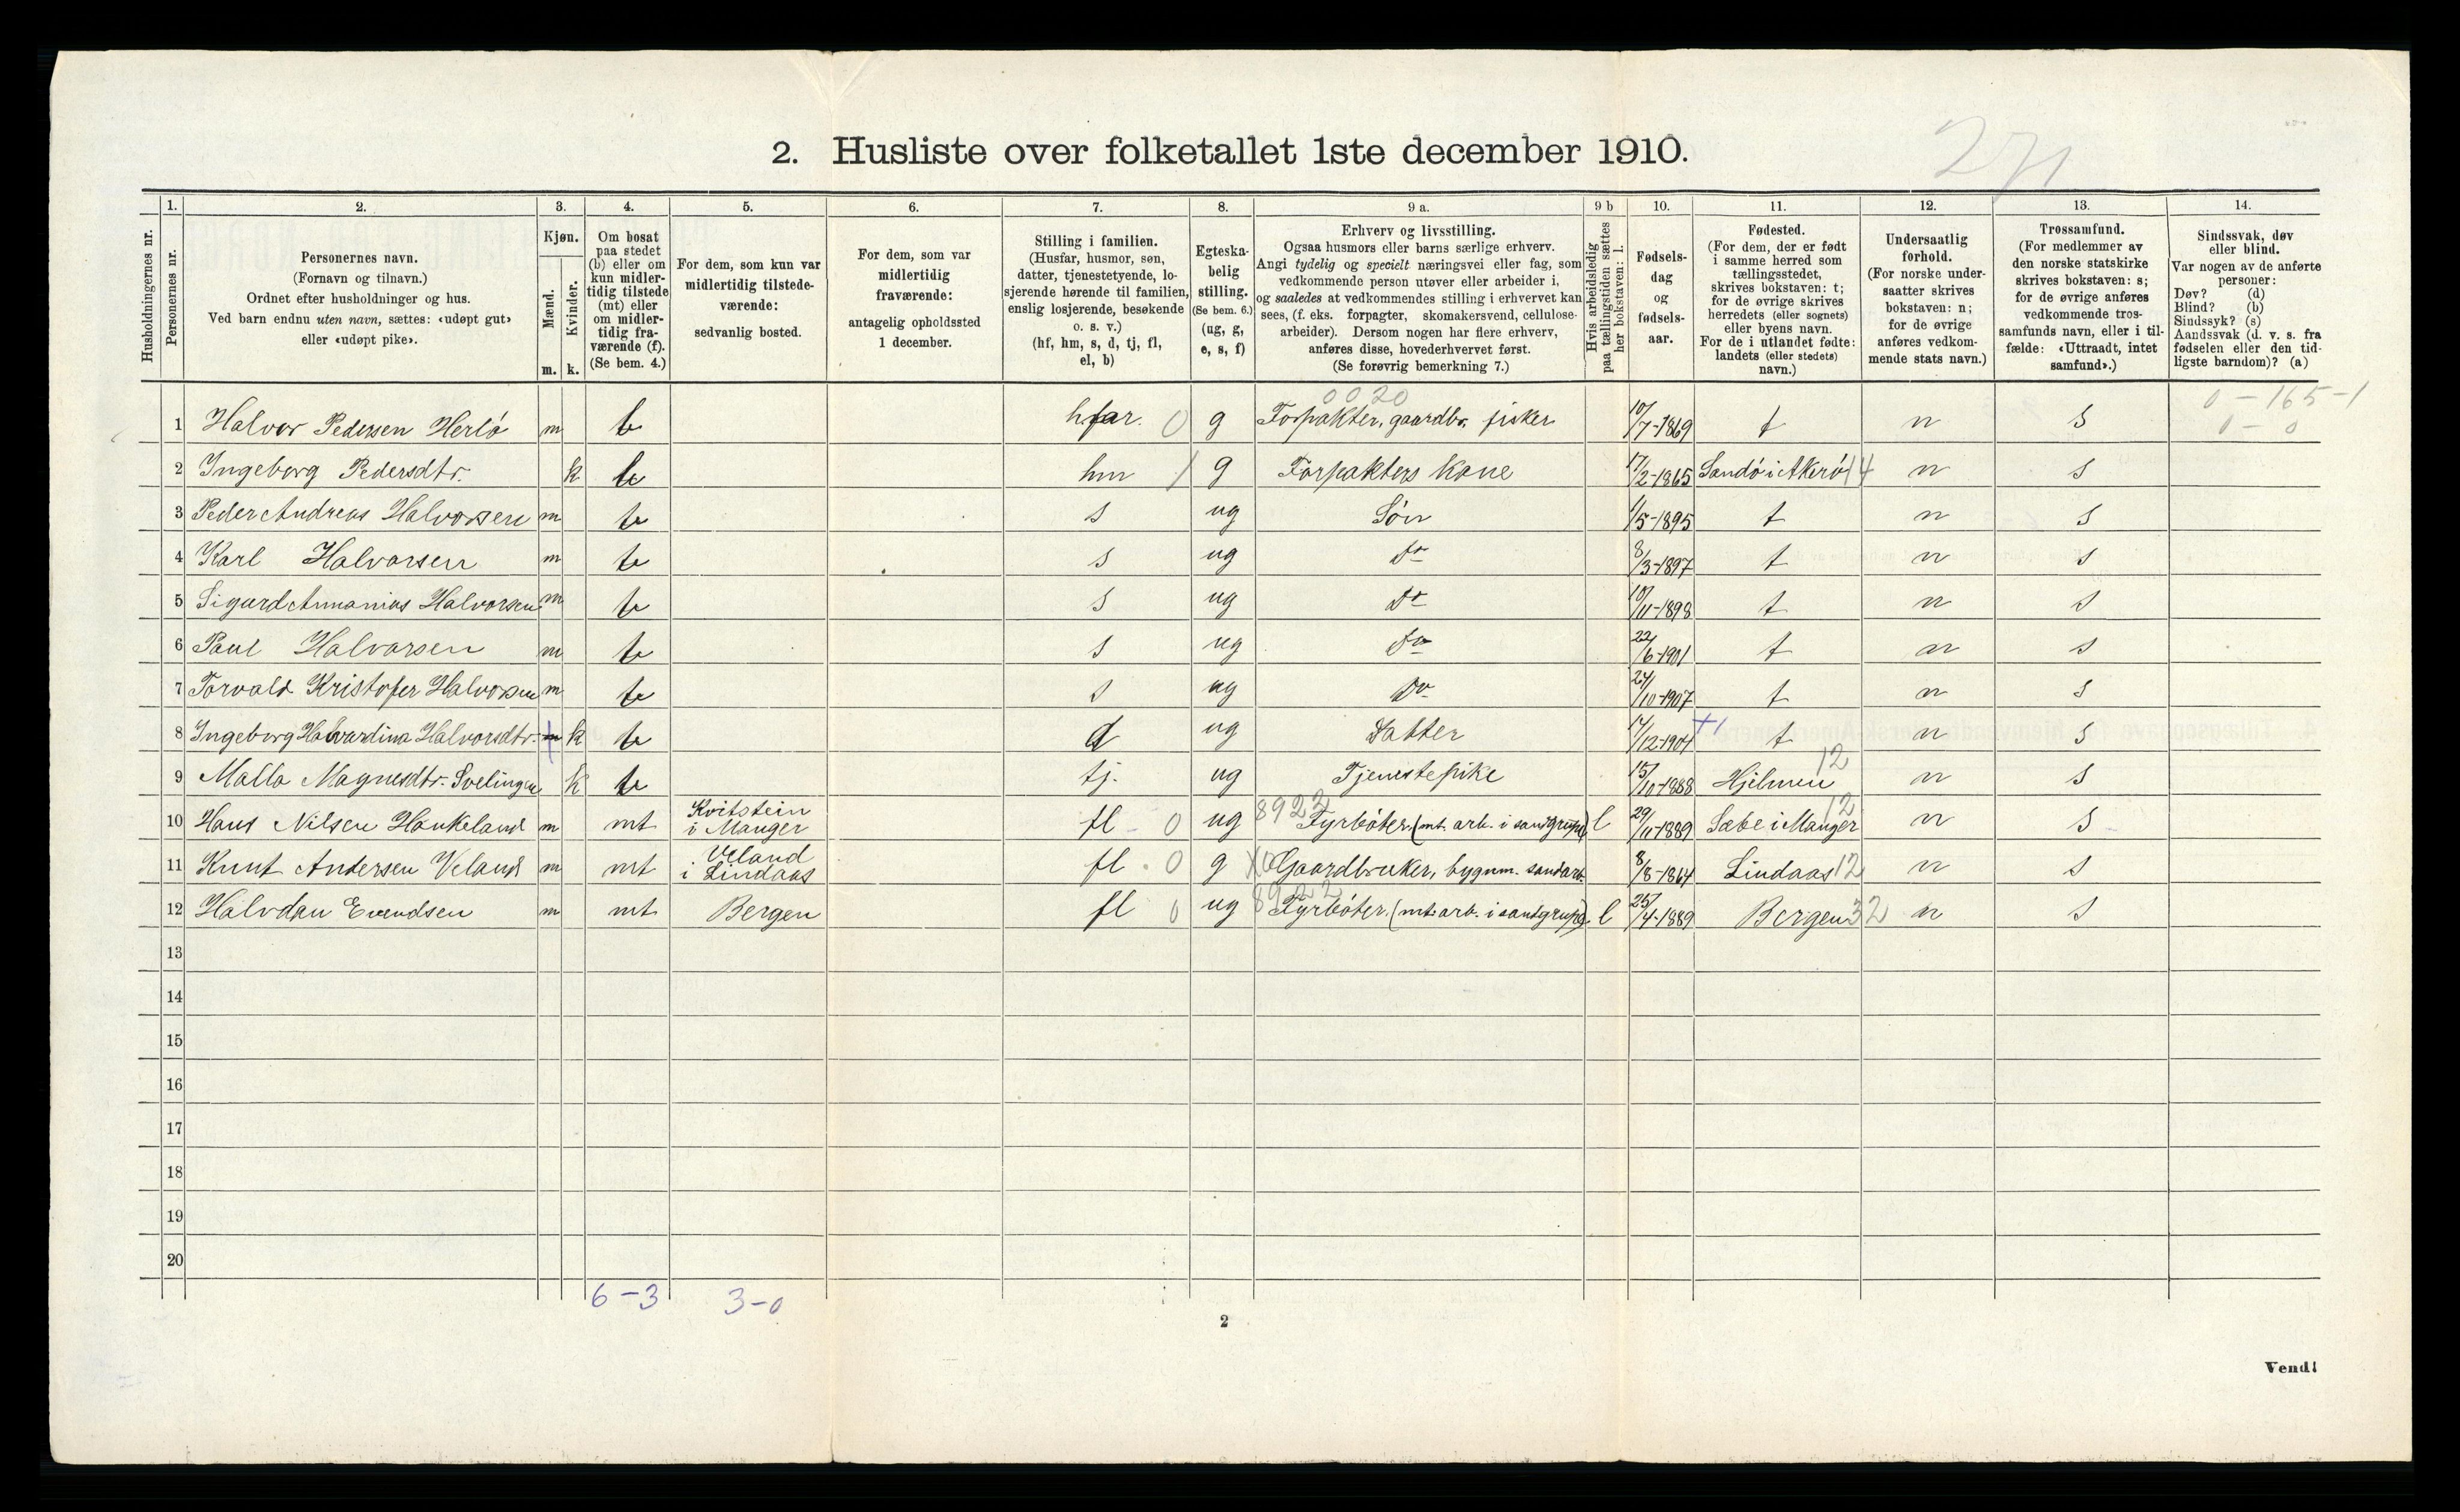 2. Husliste over folketallet 1ste december 1910.
Husholdningernes nr.
1.
Personernes nr.
2.
Personernes navn.
(Fornavn og tilnavn.)
Ordnet efter husholdninger og hus.
Ved barn endnu uten navn, sættes: «udøpt gut»
eller «udøpt pike».
3.
Kjøn.
Mænd.
Kvinder.
m. k.
4.
Om bosat
paa stedet
(b) eller om
kun midler-
tidig tilstede
(mt) eller
om midler-
tidig fra-
værende (f).
(Se bem. 4.)
5.
For dem, som kun var
midlertidig tilstede-
værende:
sedvanlig bosted.
6.
For dem, som var
midlertidig
fraværende:
antagelig opholdssted
1 december.
7.
Stilling i familien.
(Husfar, husmor, søn,
datter, tjenestetyende, lo-
sjerende hørende til familien,
enslig losjerende, besøkende
o. s. v.)
(hf, hm, s, d, tj, fl,
el, b)
8.
Egteska-
belig
stilling.
(Se bem. 6.)
(ug, g,
e, s, f)
9 a.
Erhverv og livsstilling.
Ogsaa husmors eller barns særlige erhverv.
Angi tydelig og specielt næringsvei eller fag, som
vedkommende person utøver eller arbeider i,
og saaledes at vedkommendes stilling i erhvervet kan
sees, (f. eks. forpagter, skomakersvend, cellulose-
arbeider). Dersom nogen har flere erhverv,
anføres disse, hovederhvervet først.
(Se forøvrig bemerkning 7.)
9 b
Hvis arbeidsledig
paa tællingstiden sættes
her bokstaven: l.
10.
Fødsels-
dag
og
fødsels-
aar.
11.
Fødested.
(For dem, der er født
i samme herred som
tællingsstedet,
skrives bokstaven: t;
for de øvrige skrives
herredets (eller sognets)
eller byens navn.
For de i utlandet fødte:
landets (eller stedets)
navn.)
12.
Undersaatlig
forhold.
(For norske under-
saatter skrives
bokstaven: n;
for de øvrige
anføres vedkom-
mende stats navn.)
13.
Trossamfund.
(For medlemmer av
den norske statskirke
skrives bokstaven: s;
for de øvrige anføres
vedkommende tros-
samfunds navn, eller i til-
fælde: «Uttraadt, intet
samfund».)
14.
Sindssvak, døv
eller blind.
Var nogen av de anførte
personer:
Døv? (d)
Blind? (b)
Sindssyk? (s)
Aandssvak (d. v. s. fra
fødselen eller den tid-
ligste barndom)? (a)
0020 0 - 165 - 1
1 Halvor Pedersen Herlø m b hfar. 0 g Forpakter, gaardbr. fisker 10/7-1869 t n s 0 - 0
2 Ingeborg Pedersdtr. k b hm 1 g Forpakters Kone 17/2-1865 Sandø i Akerø 14 n s
3 Peder Andreas Halvorsen m b s ug Søn 1/5-1895 t n s
4 Karl Halvorsen m b s ug Do 8/3-1897 t n s
5 Sigurd Annanias Halvorsen m b s ug Do 10/11-1898 t n s
6 Paul Halvorsen m b s ug Do 22/6-1901 t n s
7 Torvald Kristofer Halvorsen m b s ug Do 24/10-1907 t n s
8 Ingeborg Halvardina Halvorsdtr. k b d ug Datter 17/12-1904 t n s
9 Malla Magnesdtr. Svelingen k b tj. ug Tjenestepike 15/10-1888 Hjelmen 12 n s
10 Hans Nilsen Haukeland m mt Kvitstein i Manger fl - 0 ug 8922 Fyrbøter. (mt. arb. i sandgrube) l 29/11-1889 Sæbe i Manger 12 n s
11 Knut Andersen Veland m mt Veland i Lindaas fl - 0 g Gaardbruker, bygnm. sandarb. 8/8-1864 Lindaas 12 n s
12 Halvdan Evendsen m mt Bergen fl 0 ug 8922 Fyrbøter. (mt. arb. i sandgrube). l 25/4-1889 Bergen 32 n s
13
14
15
16
17
18
19
20
6 - 3 3 - 0
2
Vend!